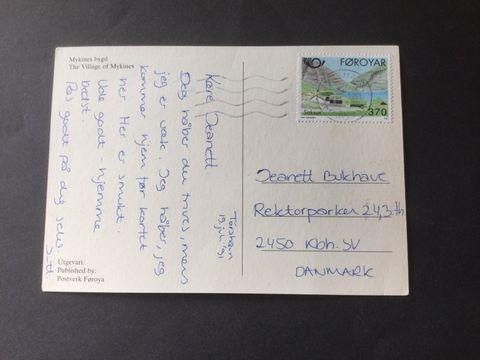 Mykines bygd
The Village of Mykines
Tórshavn
19 juli -91
Kære Jeanett
Jeg håber du trives, mens
jeg er væk. Jeg håber, jeg
kommer hjem før kortet
her. Her er smukt.
Ude godt - hjemme
bedst.
Pas godt på dig selv.
Útgevari:
Published by:
Postverk Føroya
FØROYAR
370
Jeanett Bukhave
Rektorparken 24, 3. th
2450 Kbh. SV
DANMARK